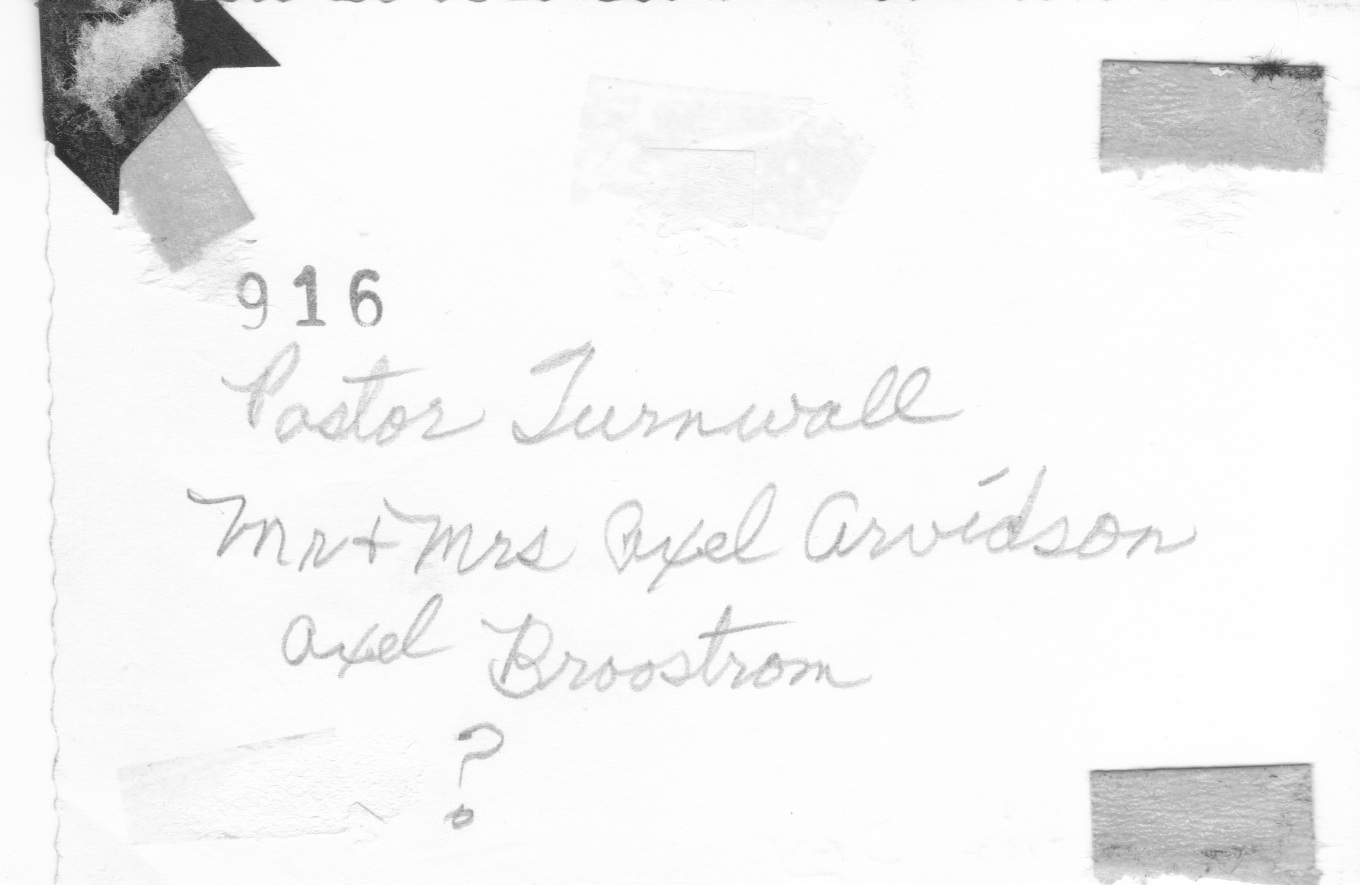 916
Pastor Turnwall
Mr + Mrs Axel Arvidson
Axel Broostrom
?